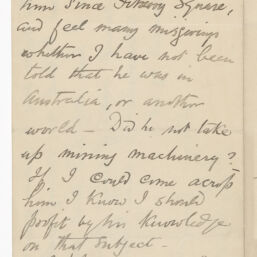 him since Fitzroy Square,
and feel many misgivings
whether I have not been
told that he was in
Australia, or another
world – Did he not take
up mining machinery?
If I could come across
him I know I should
profit by his knowledge
on that subject –